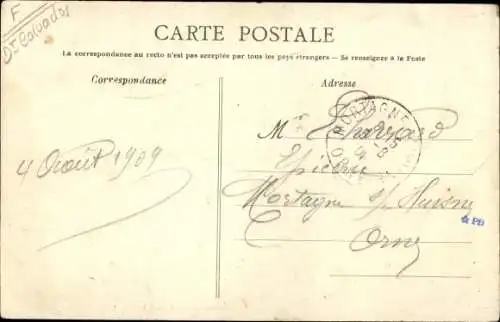 F
Dt Calvados
CARTE POSTALE
La correspondance au recto n'est pas acceptée par tous les pays étrangers — Se renseigner à la Poste
Correspondance
Adresse
MORTAGNE
M
Epicerie
4 Août 1909
Mortagne s/ Huisne
Orne